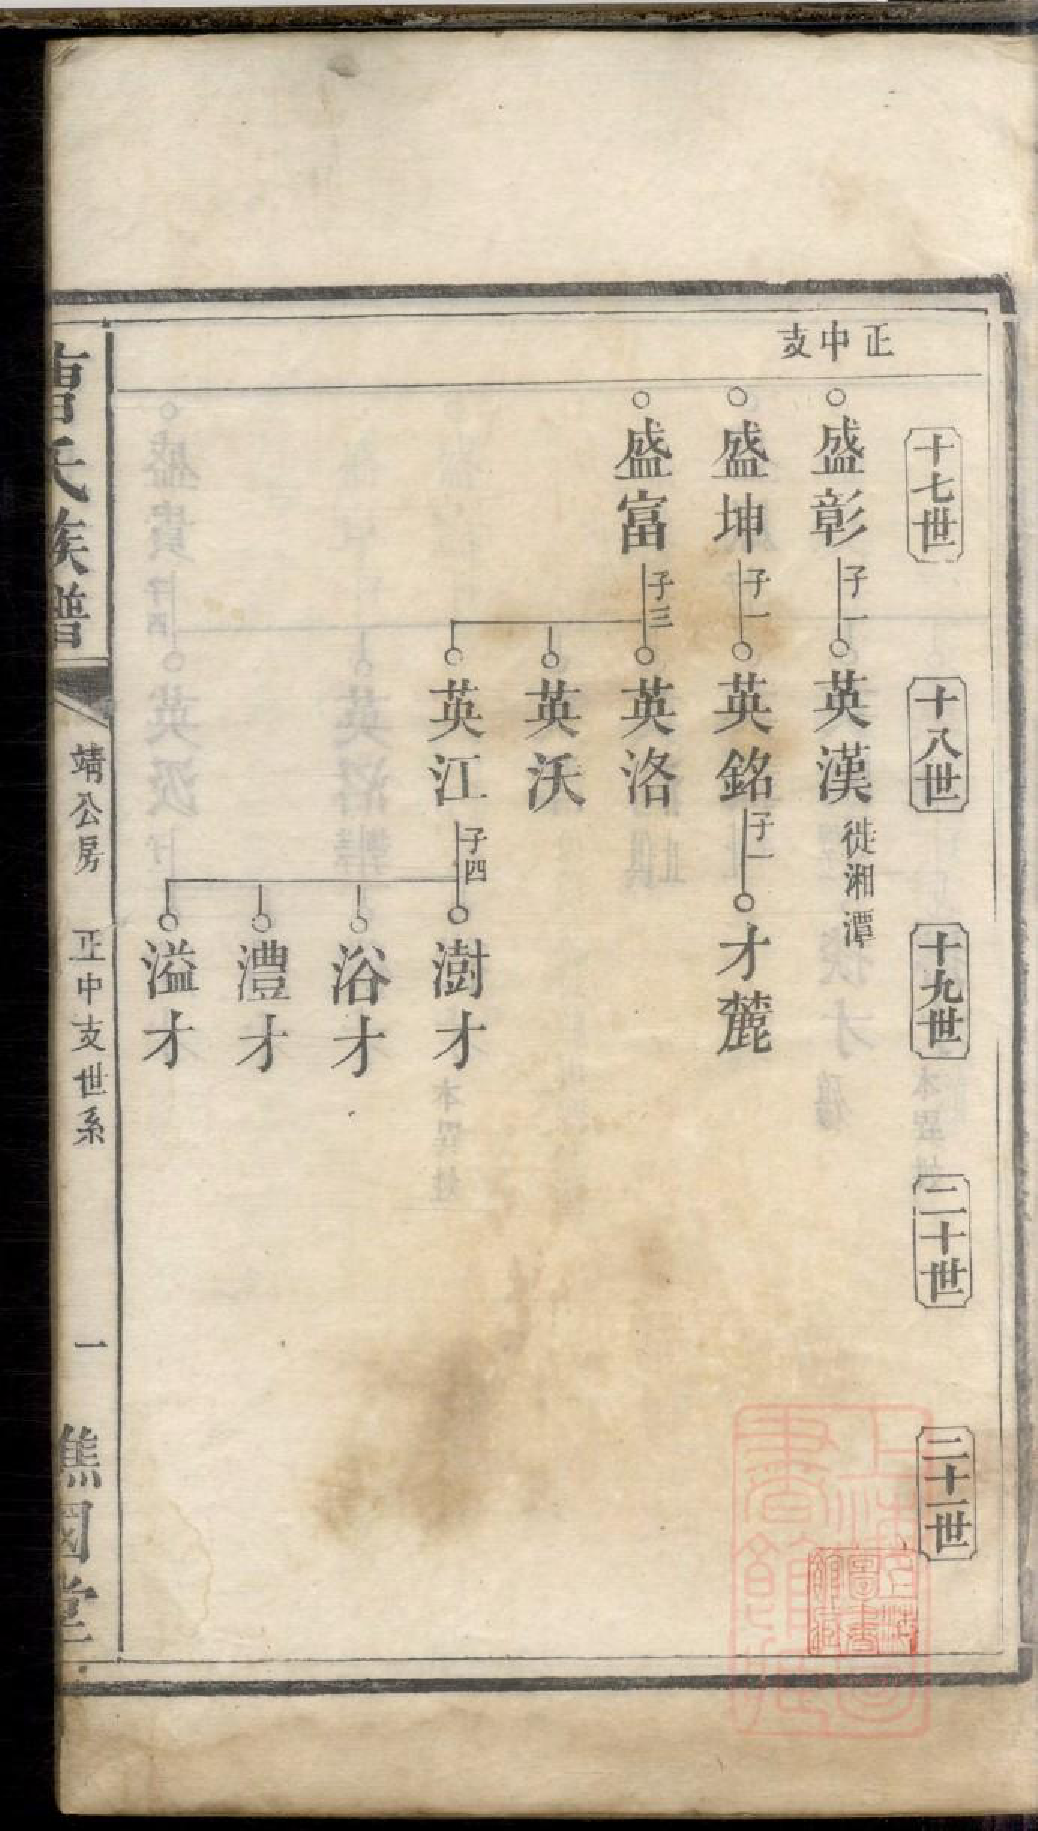 正中支
十七世
十八世
十九世
二十世
二十一世
盛彰
子一
英漢
徙湘潭
盛坤
子一
英銘
子一
才麓
盛富
子三
英洛
英沃
英江
子四
澍才
浴才
澧才
溢才
曹氏族譜
靖公房
正中支世系
一
譙國堂
上海圖書館藏